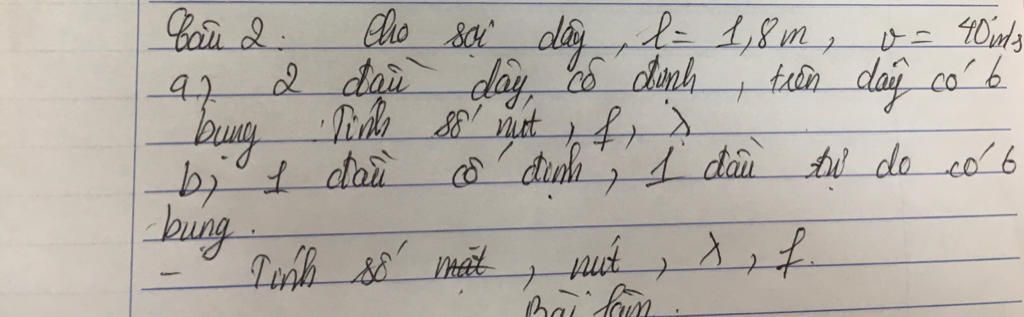 Câu 2: Cho sợi dây, l = 1,8m, v = 40m/s
a) 2 đầu dây cố định, trên dây có 6
bụng. Tính số nút, f, λ
b) 1 đầu cố định, 1 đầu tự do có 6
bụng.
- Tính số mặt, nút, λ, f.
Bài làm.